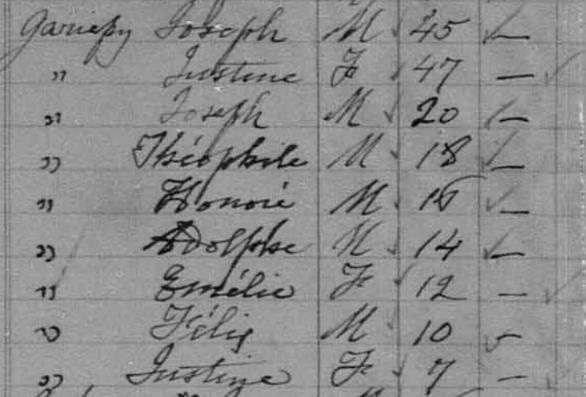 Gariepy Joseph M 45 —
" Justine F 47 —
" Joseph M 20 —
" Théophile M 18 —
" Honoré M 16 —
" Adolphe M 14 —
" Emélie F 12 —
" Félix M 10 —
" Justine F 7 —